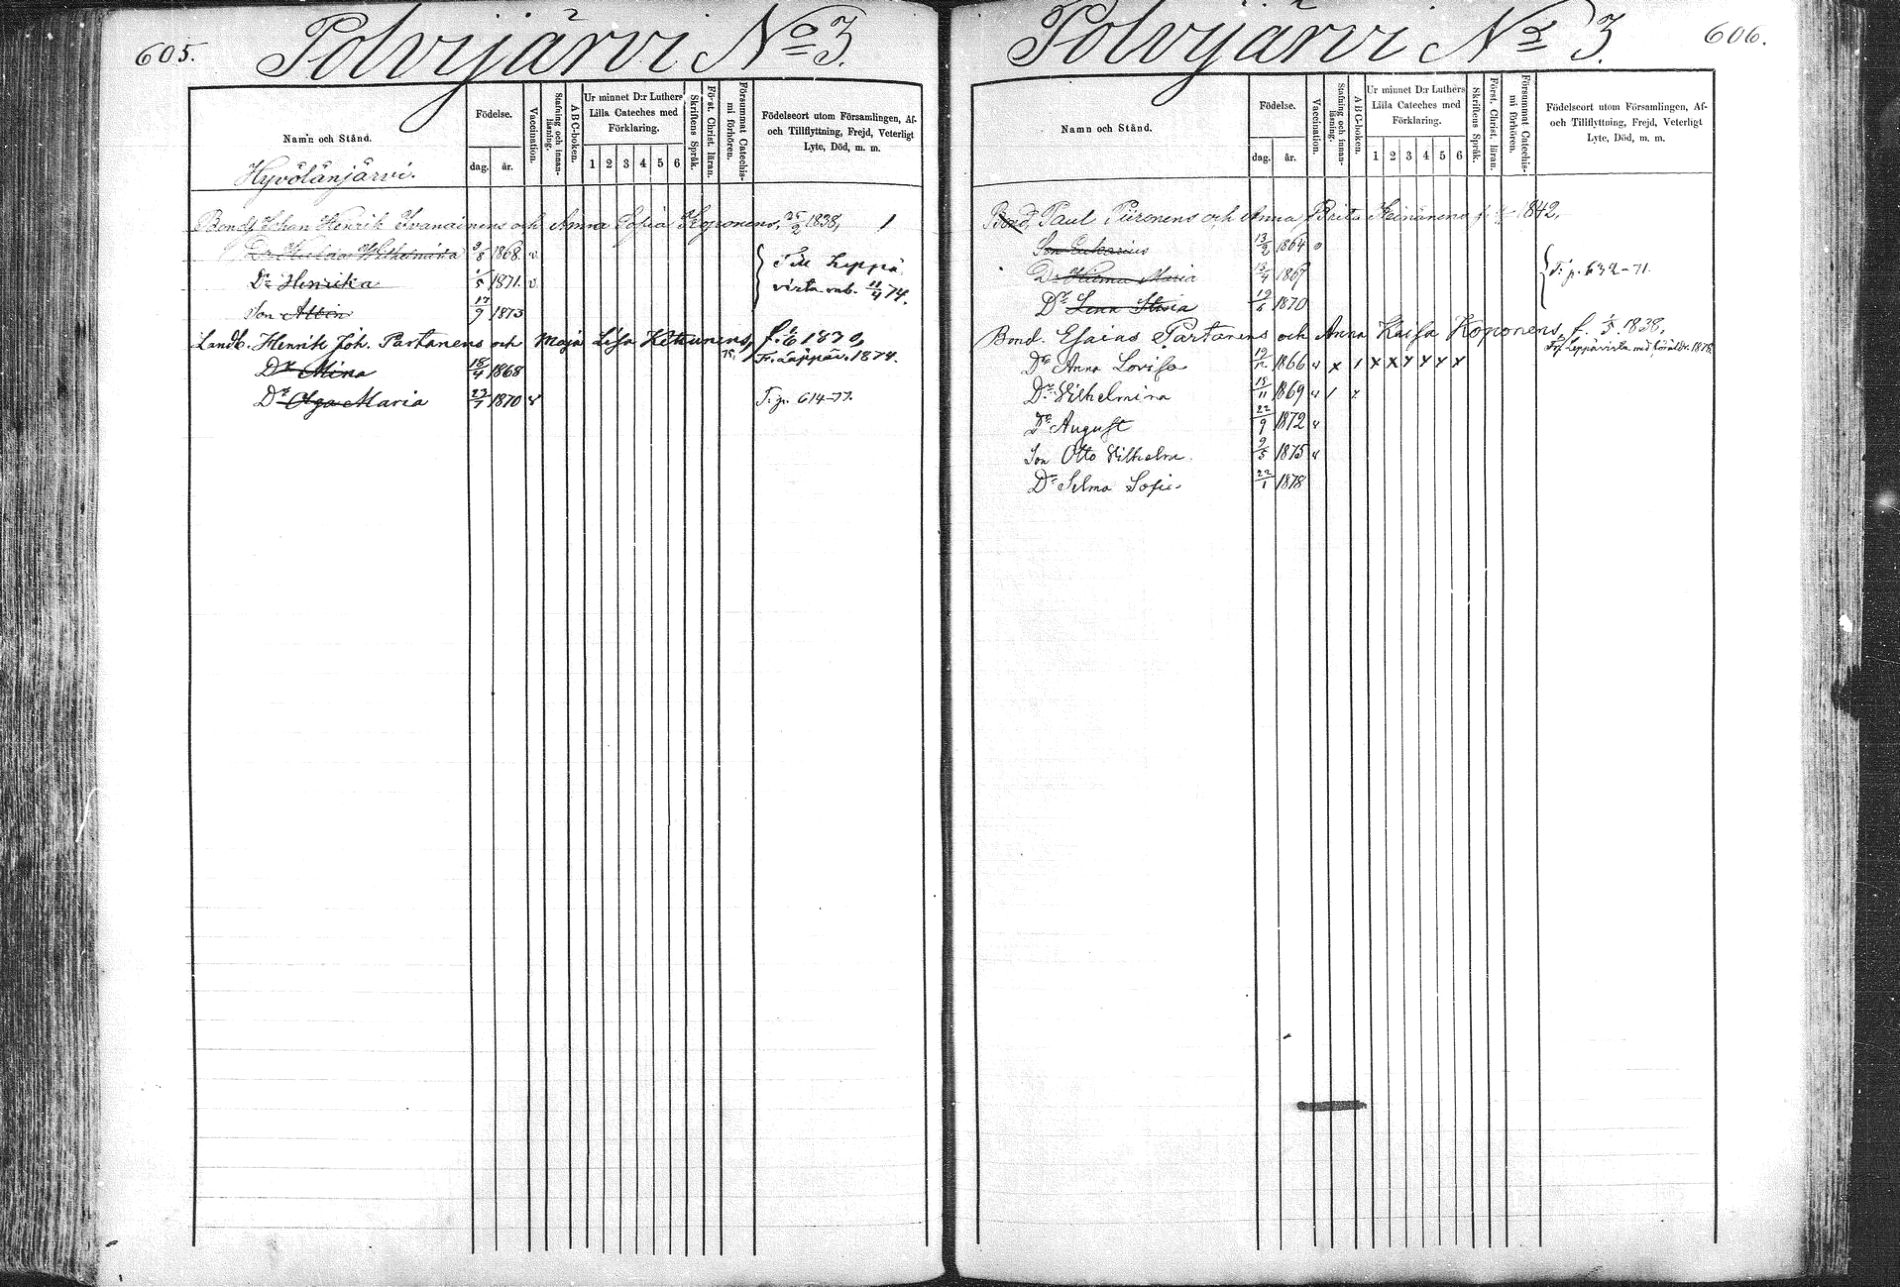 605.
Polvijärvi No 3.
Namn och Stånd.
Födelse.
dag.
år.
Vaccination.
Stafning och innanläsning.
ABC-boken.
Ur minnet D:r Luthers
Lilla Cateches med
Förklaring.
1 2 3 4 5 6
Skriftens Språk.
Först. Christ. läran.
Försummat Catechismi förhören.
Födelseort utom Församlingen, Af-
och Tillflyttning, Frejd, Veterligt
Lyte, Död, m. m.
Hyvölänjärvi.
Bond. Johan Henrik Ivanainens och Anna Sofia Koponens, 25/2 1838, 1
Dr Wilhelmina 9/8 1868 v
Dr Henrika /5 1871. v
Till Leppä
virta rub. 11/4 74.
Son Albin 17/9 1873
Landb. Henrik Joh. Partanens och Maja Lisa Kettunens, f. 1830,
Fr. Leppäv. 1874.
Dr Mina 18/4 1868
Dr Olga Maria 23/7 1870 v T. p. 614-77.
606.
Polvijärvi No 3.
Namn och Stånd.
Födelse.
dag.
år.
Vaccination.
Stafning och innanläsning.
ABC-boken.
Ur minnet D:r Luthers
Lilla Cateches med
Förklaring.
1 2 3 4 5 6
Skriftens Språk.
Först. Christ. läran.
Försummat Catechismi förhören.
Födelseort utom Församlingen, Af-
och Tillflyttning, Frejd, Veterligt
Lyte, Död, m. m.
Bond. Paul Piironens och Anna Brita Heinänens f. 1842,
Son Eukarius 13/2 1864 v
Dr Maria 13/4 1867 T. p. 632-71.
Dr Lena Stiria 19/6 1870
Bond. Esaias Partanens och Anna Kaisa Koponens, f. /5 1838,
Fr. Leppävirta 1878
Dr Anna Lovisa 19/12 1866 v x 1 x x x x x x
Dr Vilhelmina 15/11 1869 v 1 x
Dr August 22/9 1872 v
Son Otto Vilhelm 9/5 1875 v
Dr Selma Sofia 22/1 1878